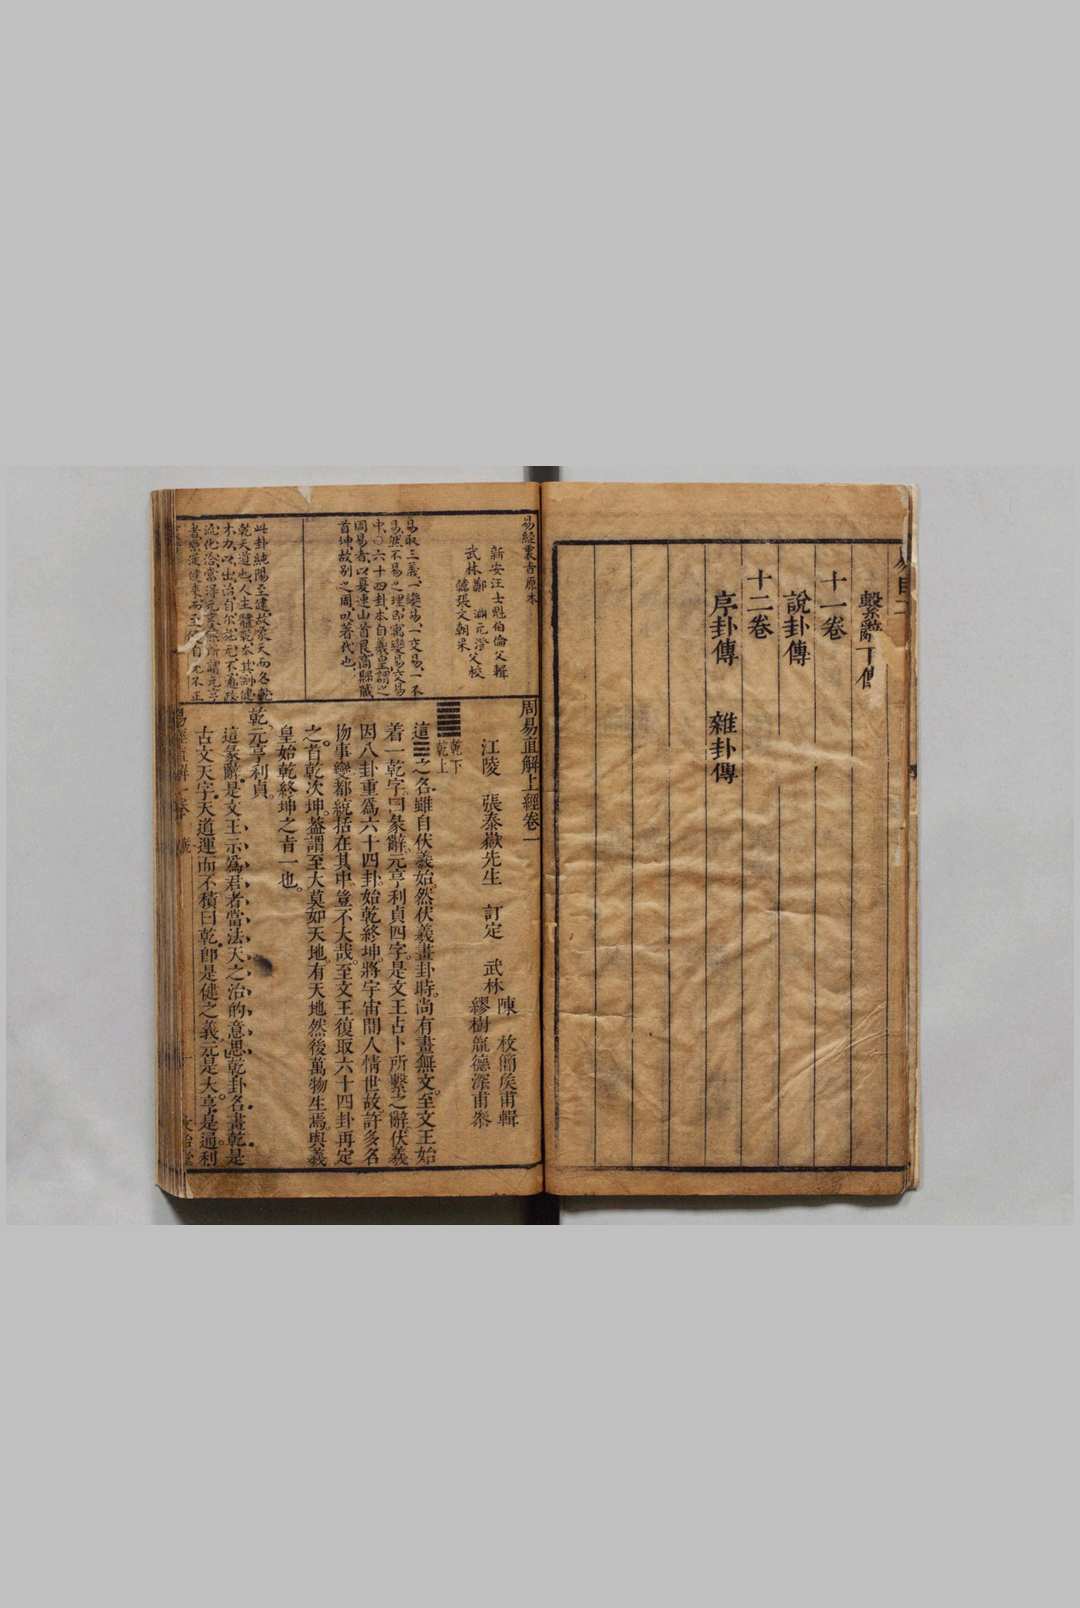 繫辭下傳
十一卷
說卦傳
十二卷
序卦傳 雜卦傳
易經衷旨原本
新安汪士魁伯倫父輯
武林鄭 元澄父校
張文朝采
易取三義一變易一交易一不
易然不易之理即寓變易交易
中〇六十四卦本自羲皇謂之
周易者以夏連山首艮商歸藏
首坤故別之周以著代也
此卦純陽至健故象天而名乾
乾天道也人主體乾本其剛健
周易直解上經卷一
江陵 張泰嶽先生 訂定 武林
陳 枚簡侯甫輯
繆樹龍德深甫參
乾下
乾上
這☰之名雖自伏羲始然伏羲畫卦時尚有畫無文至文王始
着一乾字曰彖辭元亨利貞四字是文王占卜所繫之辭伏羲
因八卦重爲六十四卦始乾終坤將宇宙間人情世故許多名
物事變都統括在其中豈不大哉至文王復取六十四卦再定
之首乾次坤葢謂至大莫如天地有天地然後萬物生焉與羲
皇始乾終坤之旨一也
乾元亨利貞
這彖辭是文王示爲君者當法天之治的意思乾卦名畫乾是
古文天字天道運而不積曰乾卽是健之義元是大亨是通利
易經直解一卷